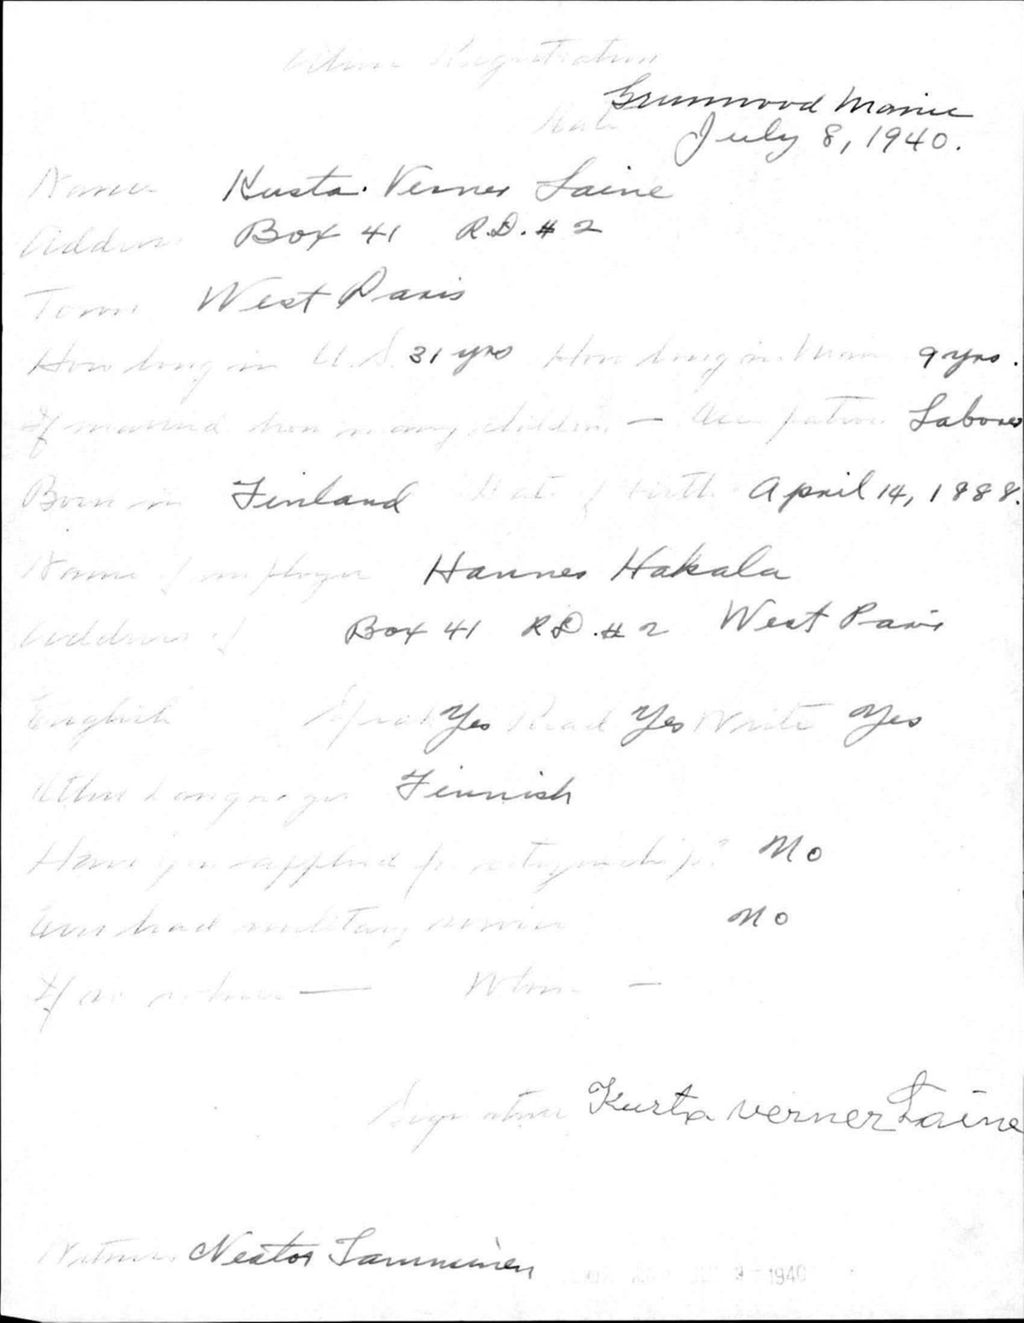 Alien Registration
Greenwood Maine
Date July 8, 1940.
Name Kusta Verner Laine
Address Box 41 R.D. # 2
Town West Paris
How long in U.S. 31 yrs How long in Maine 9 yrs.
If married how many children — Occupation Laborer
Born in Finland Date of birth April 14, 1888.
Name of employer Hannes Hakala
Address of Box 41 R.D. # 2 West Paris
English Speak Yes Read Yes Write Yes
Other languages Finnish
Have you applied for citizenship? No
Ever had military service No
If so where — When —
Signature Kusta Verner Laine
Witness Nestor Tamminen
9 1940